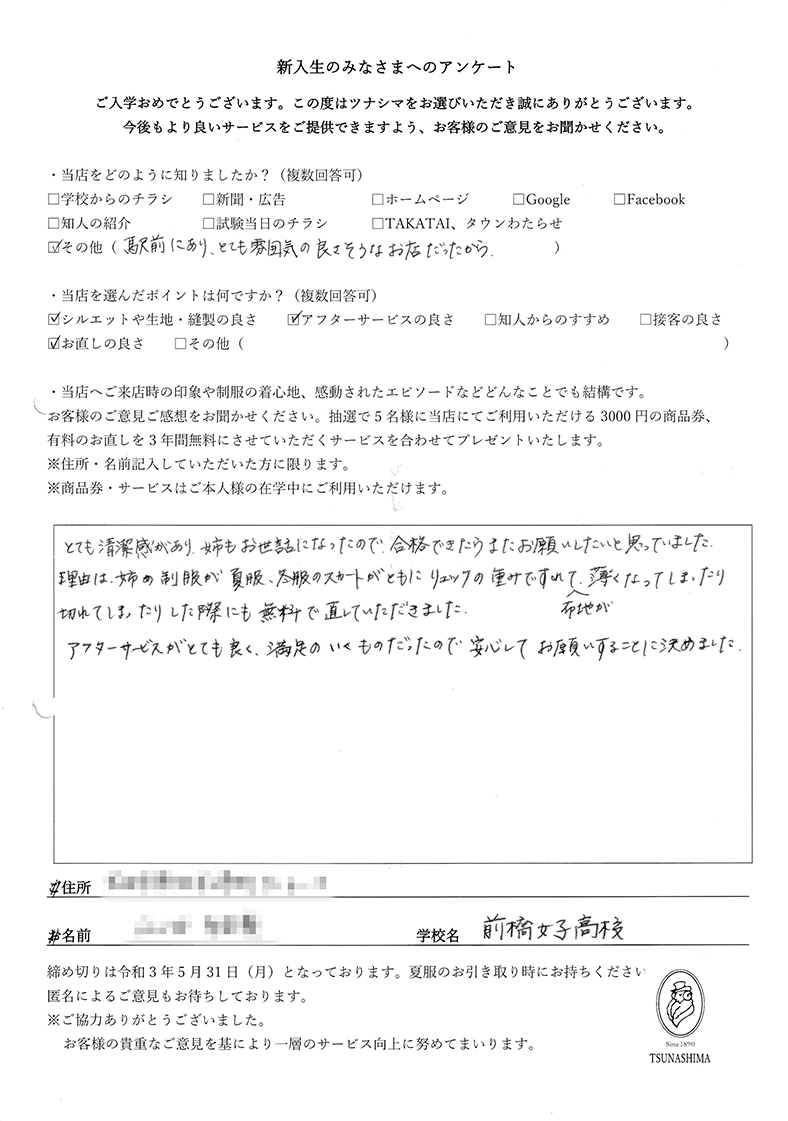 新入生のみなさまへのアンケート
ご入学おめでとうございます。この度はツナシマをお選びいただき誠にありがとうございます。
今後もより良いサービスをご提供できますよう、お客様のご意見をお聞かせください。
・当店をどのように知りましたか？（複数回答可）
□学校からのチラシ □新聞・広告 □ホームページ □Google □Facebook
□知人の紹介 □試験当日のチラシ □TAKATAI、タウンわたらせ
☑その他（ 駅前にあり、とても雰囲気の良さそうなお店だったから. ）
・当店を選んだポイントは何ですか？（複数回答可）
☑シルエットや生地・縫製の良さ ☑アフターサービスの良さ □知人からのすすめ □接客の良さ
☑お直しの良さ □その他（ ）
・当店へご来店時の印象や制服の着心地、感動されたエピソードなどどんなことでも結構です。
お客様のご意見ご感想をお聞かせください。抽選で5名様に当店にてご利用いただける3000円の商品券、
有料のお直しを3年間無料にさせていただくサービスを合わせてプレゼントいたします。
※住所・名前記入していただいた方に限ります。
※商品券・サービスはご本人様の在学中にご利用いただけます。
とても清潔感があり、姉もお世話になったので、合格できたらまたお願いしたいと思っていました.
理由は、姉の制服が夏服、冬服のスカートがともにリュックの重みですれて、薄くなってしまったり
布地が
切れてしまったりした際にも無料で直していただきました.
アフターサービスがとても良く、満足のいくものだったので安心してお願いすることに決めました.
住所
名前 学校名 前橋女子高校
締め切りは令和3年5月31日（月）となっております。夏服のお引き取り時にお持ちください
匿名によるご意見もお待ちしております。
※ご協力ありがとうございました。
お客様の貴重なご意見を基により一層のサービス向上に努めてまいります。
Sine1890
TSUNASHIMA